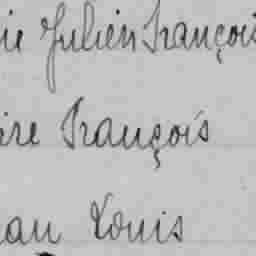 ie Julien François
ire François
an Louis